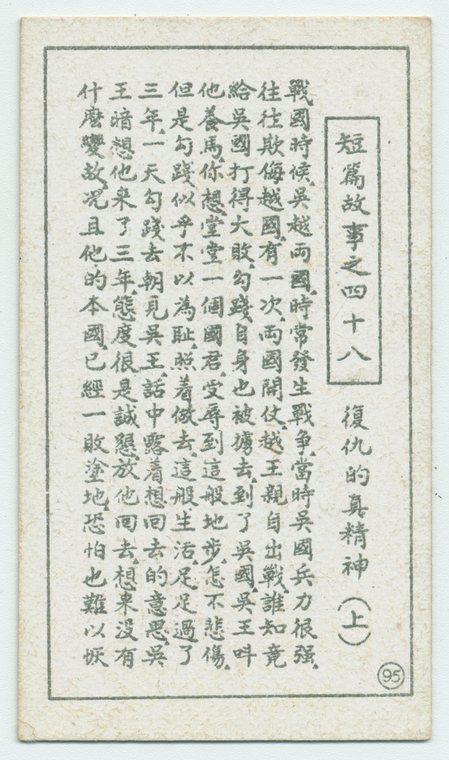 短篇故事之四十八
復仇的真精神（上）
戰國時候．吳越両國．時常發生戰爭．當時吳國兵力很強．
往往欺侮越國．有一次．両國開仗．越王親自出戰．誰知竟
給吳國打得大敗．勾踐自身也被擄去．到了吳國．吳王呌
他養馬．你想堂堂一個國君．受辱到這般地步．怎不悲傷．
但是勾踐似乎不以為恥．照着做去．這般生活．足足過了
三年．一天勾踐去朝見吳王．話中露着想回去的意思．吳
王暗想他来了三年．態度很是誠懇．放他回去．想来没有
什麽變故．况且他的本國．已經一敗塗地．恐怕也難以恢
95